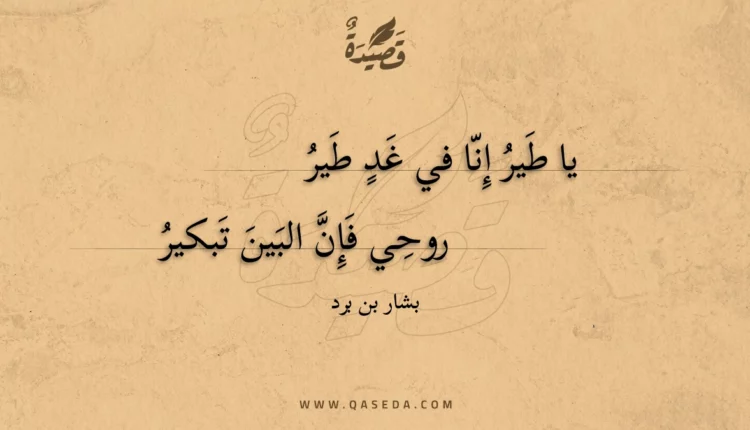 قَصِيدَةٌ
يا طَيرُ إِنّا في غَدٍ طَيرُ
روحِي فَإِنَّ البَينَ تَبكيرُ
بشار بن برد
WWW.QASEDA.COM